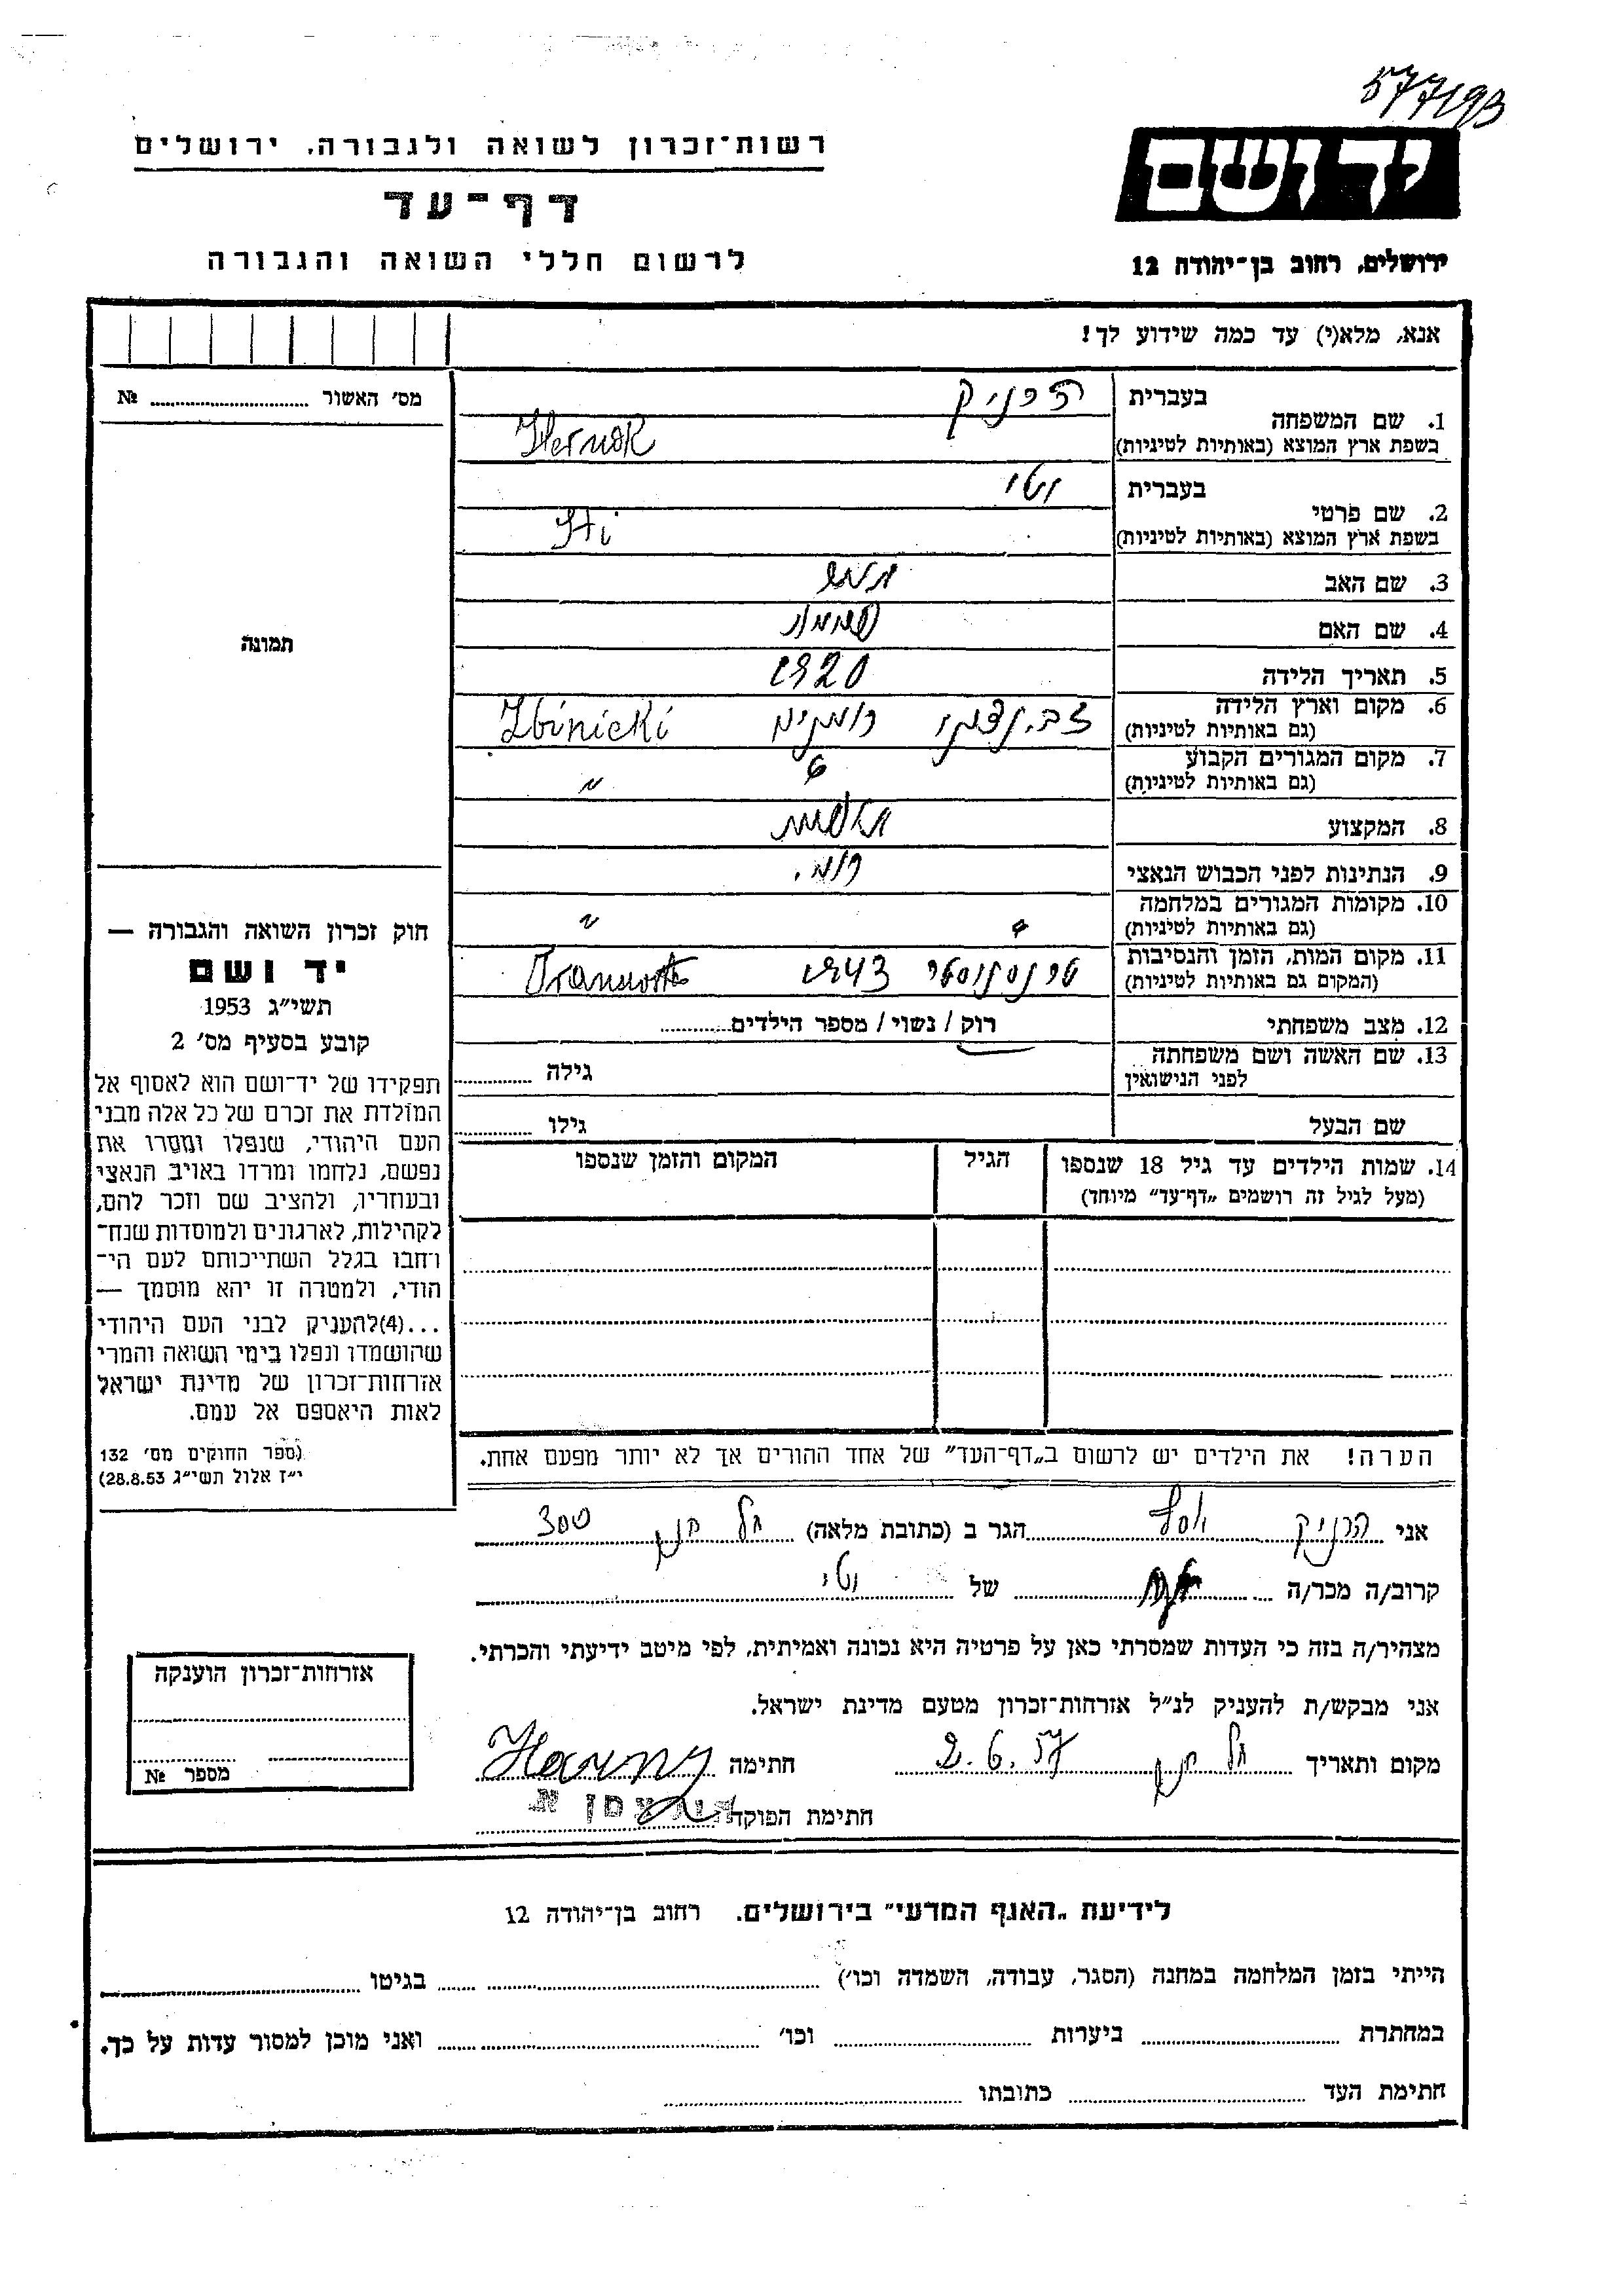 57793
ידושם
רשות־זכרון לשואה ולגבורה, ירושלים
דף־עד
לרשום חללי השואה והגבורה
ירושלים, רחוב בן־יהודה 12
אנא, מלא(י) עד כמה שידוע לך!
מס׳ האשור № 
תמונה
1. שם המשפחה בעברית הרניק
בשפת ארץ המוצא (באותיות לטיניות)
2. שם פרטי בעברית יטי
בשפת ארץ המוצא (באותיות לטיניות) Iti
3. שם האב
4. שם האם
5. תאריך הלידה 1920
6. מקום וארץ הלידה
(גם באותיות לטיניות) רומניה Zbinicki
7. מקום המגורים הקבוע
(גם באותיות לטיניות) "
8. המקצוע
9. הנתינות לפני הכבוש הנאצי רומ.
10. מקומות המגורים במלחמה
(גם באותיות לטיניות) "
11. מקום המות, הזמן והנסיבות
(המקום גם באותיות לטיניות) טרנסנוסטר 1943
12. מצב משפחתי רוק / נשוי / מספר הילדים
13. שם האשה ושם משפחתה
לפני הנישואין גילה
שם הבעל גילו
14. שמות הילדים עד גיל 18 שנספו הגיל המקום והזמן שנספו
(מעל לגיל זה רושמים „דף־עד״ מיוחד)
הערה! את הילדים יש לרשום ב„דף־העד״ של אחד ההורים אך לא יותר מפעם אחת.
חוק זכרון השואה והגבורה —
יד ושם
תשי״ג 1953
קובע בסעיף מס׳ 2
תפקידו של יד־ושם הוא לאסוף אל
המולדת את זכרם של כל אלה מבני
העם היהודי, שנפלו ומסרו את
נפשם, נלחמו ומרדו באויב הנאצי
ובעוזריו, ולהציב שם וזכר להם,
לקהילות, לארגונים ולמוסדות שנח־
רחבו בגלל השתייכותם לעם הי־
הודי, ולמטרה זו יהא מוסמך —
...(4)להעניק לבני העם היהודי
שהושמדו ונפלו בימי השואה והמרי
אזרחות־זכרון של מדינת ישראל
לאות היאספם אל עמם.
(ספר החוקים מס׳ 132
י״ז אלול תשי״ג 28.8.53)
אני הרניק יוסף הגר ב (כתובת מלאה) תל חנן 300
קרוב/ה מכר/ה אח של יטי
מצהיר/ה בזה כי העדות שמסרתי כאן על פרטיה היא נכונה ואמיתית, לפי מיטב ידיעתי והכרתי.
אני מבקש/ת להעניק לנ״ל אזרחות־זכרון מטעם מדינת ישראל.
מקום ותאריך תל חנן 2.6.57 חתימה
חתימת הפוקד
אזרחות־זכרון הוענקה
מספר №
לידיעת „האגף המדעי״ בירושלים. רחוב בן־יהודה 12
הייתי בזמן המלחמה במחנה (הסגר, עבודה, השמדה וכו׳) בגיטו
במחתרת ביערות וכו׳ ואני מוכן למסור עדות על כך.
חתימת העד כתובתו